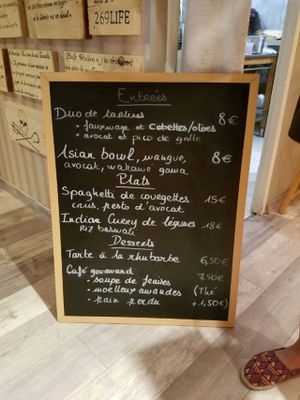 269LIFE
Entrées
Duo de tartines 8€
• fauxmage et Cebettes/olives
• avocat et pico de gallo
Asian bowl, mangue, 8€
avocat, wakamé goma
Plats
Spaghetti de courgettes 15€
crus, pesto d'avocat
Indian Curry de légumes 18€
Riz basmati
Desserts
Tarte à la rhubarbe 6,50€
Café gourmand 7,50€
• soupe de fraises
• moelleux amandes (Thé
• pain perdu +1,50€)